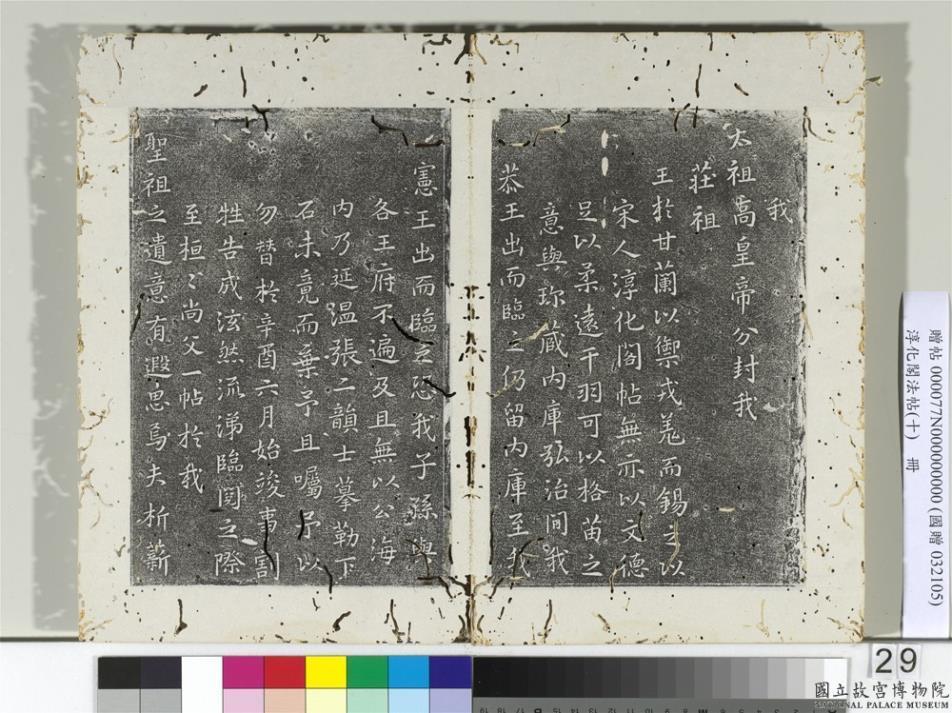 我
太祖高皇帝分封我
莊祖
王於甘蘭以禦戎羗而錫之以
宋人淳化閣帖無亦以文德
足以柔遠干羽可以格苗之
意與珍藏內庫弘治間我
恭王出而臨之仍留內庫至我
憲王出而臨之恐我子孫與
各王府不遍及且無以公海
內乃延温張二韻士摹勒下
石未竟而棄予且囑予以
勿替於辛酉六月始竣事割
牲告成泫然流涕臨閱之際
至桓〻尚父一帖於我
聖祖之遺意有遐思焉夫析薪
贈帖 000077N000000000 (國贈 032105)
淳化閣法帖(十) 冊
29
國立故宮博物院
NATIONAL PALACE MUSEUM